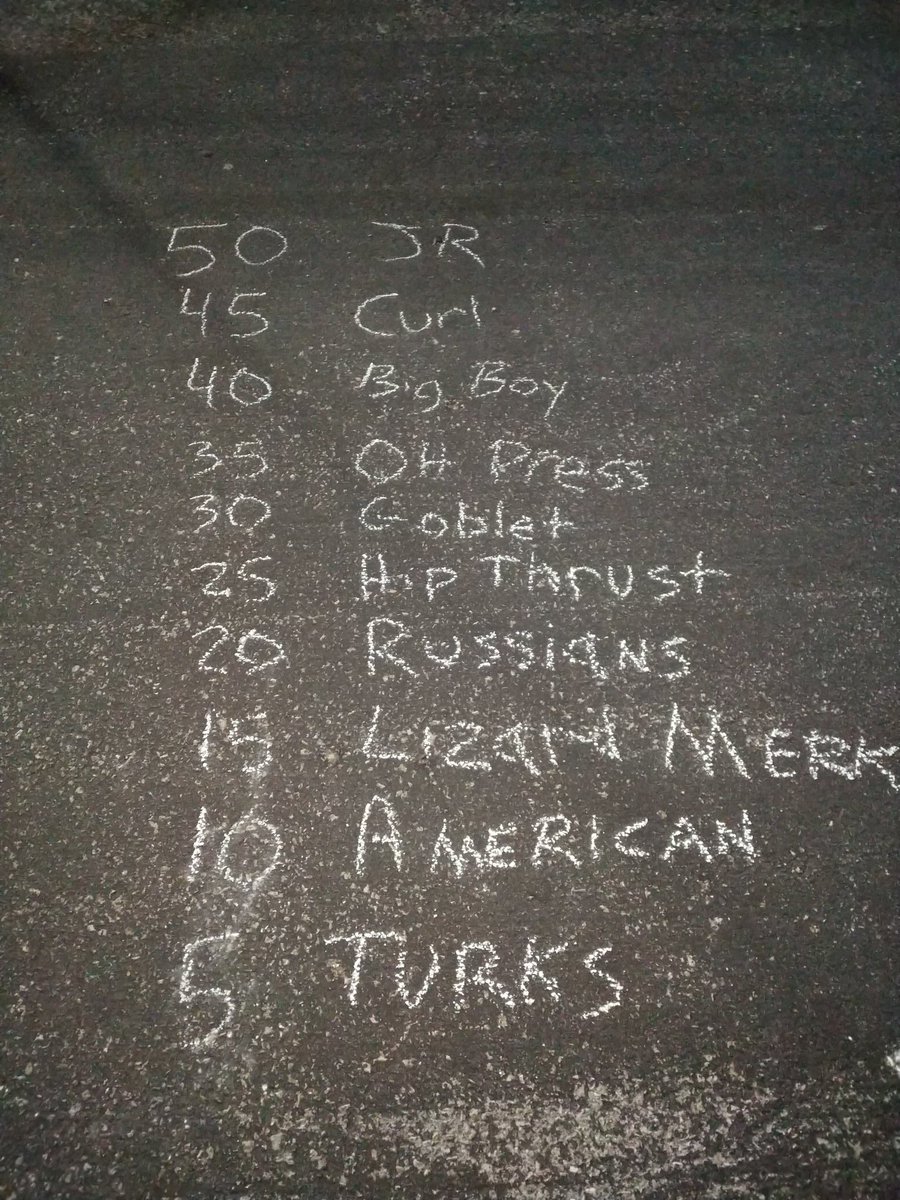 50 JR
45 Curl
40 Big Boy
35 OH Press
30 Goblet
25 Hip Thrust
20 Russians
15 Lizard Merk
10 American
5 Turks